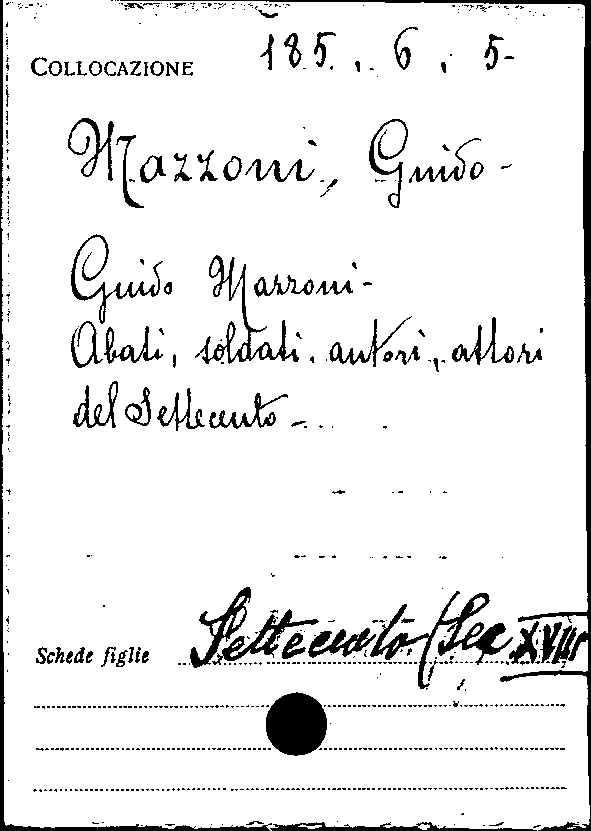 COLLOCAZIONE 185. 6. 5-
Mazzoni, Guido-
Guido Mazzoni-
Abati, soldati, autori, attori
del Settecento-
Schede figlie Settecento (Sec XVIII